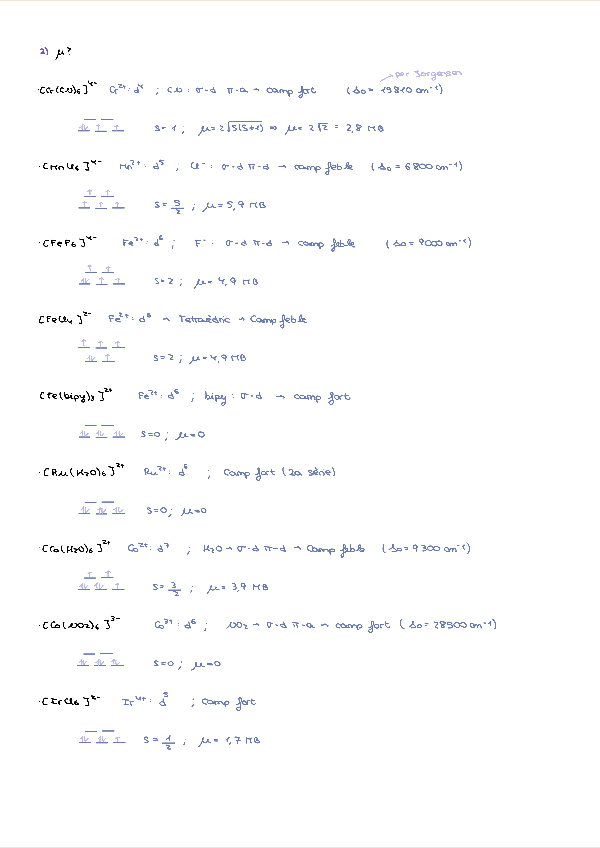 2) μ?
por Jorgensen
· [Cr(CN)₆]⁴⁻ Cr²⁺: d⁴ ; CN: σ-d π-a → camp fort (Δo = 19810 cm⁻¹)
S = 1 ; μ = 2√S(S+1) ⇒ μ = 2√2 = 2,8 MB
· [MnCl₆]⁴⁻ Mn²⁺: d⁵ ; Cl⁻: σ-d π-d → camp feble (Δo = 6800 cm⁻¹)
S = 5/2 ; μ = 5,9 MB
· [FeF₆]⁴⁻ Fe²⁺: d⁶ ; F⁻: σ-d π-d → camp feble (Δo = 9000 cm⁻¹)
S = 2 ; μ = 4,9 MB
[FeCl₄]²⁻ Fe²⁺: d⁶ → Tetraèdric → Camp feble
S = 2 ; μ = 4,9 MB
[Fe(bipy)₃]²⁺ Fe²⁺: d⁶ ; bipy: σ-d → camp fort
S = 0 ; μ = 0
· [Ru(H₂O)₆]²⁺ Ru²⁺: d⁶ ; Camp fort (2a sèrie)
S = 0 ; μ = 0
· [Co(H₂O)₆]²⁺ Co²⁺: d⁷ ; H₂O → σ-d π-d → Camp feble (Δo = 9300 cm⁻¹)
S = 3/2 ; μ = 3,9 MB
· [Co(NO₂)₆]³⁻ Co³⁺: d⁶ ; NO₂ → σ-d π-a → camp fort (Δo = 28500 cm⁻¹)
S = 0 ; μ = 0
· [IrCl₆]²⁻ Ir⁴⁺: d⁵ ; Camp fort
S = 1/2 ; μ = 1,7 MB